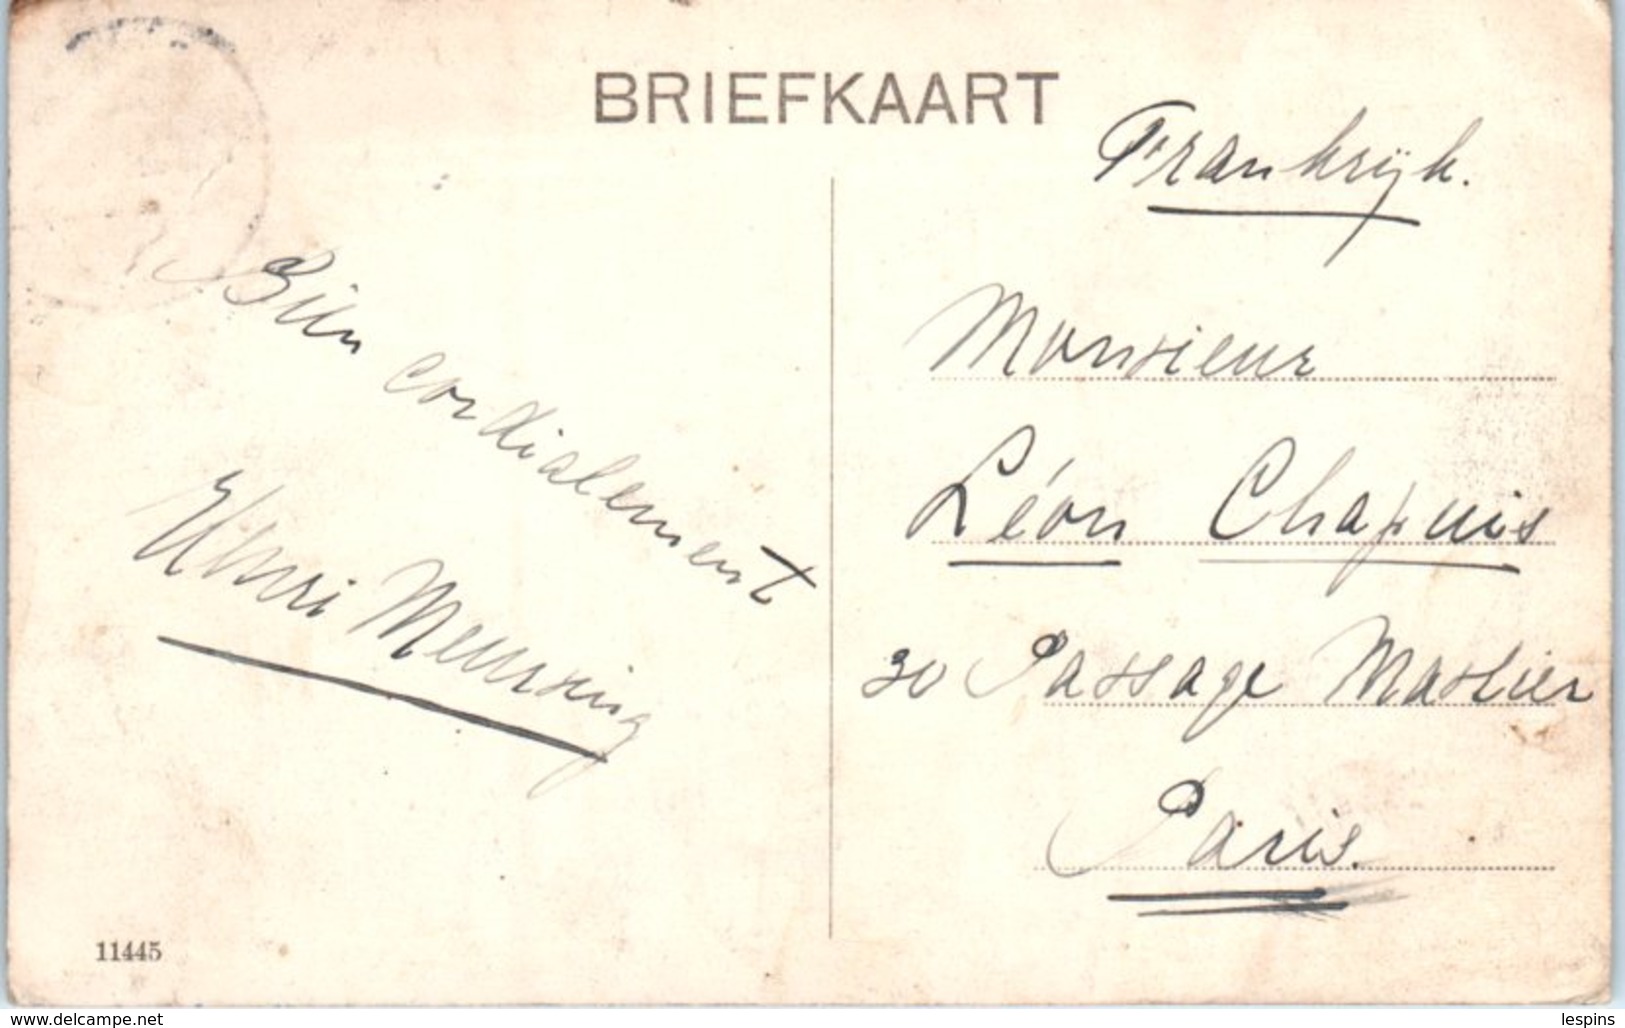 BRIEFKAART
Frankrijk.
Bien cordialement
Henri Meursing
Monsieur
Léon Chapuis
30 Passage Maslier
Paris.
11445
www.delcampe.net
lespins